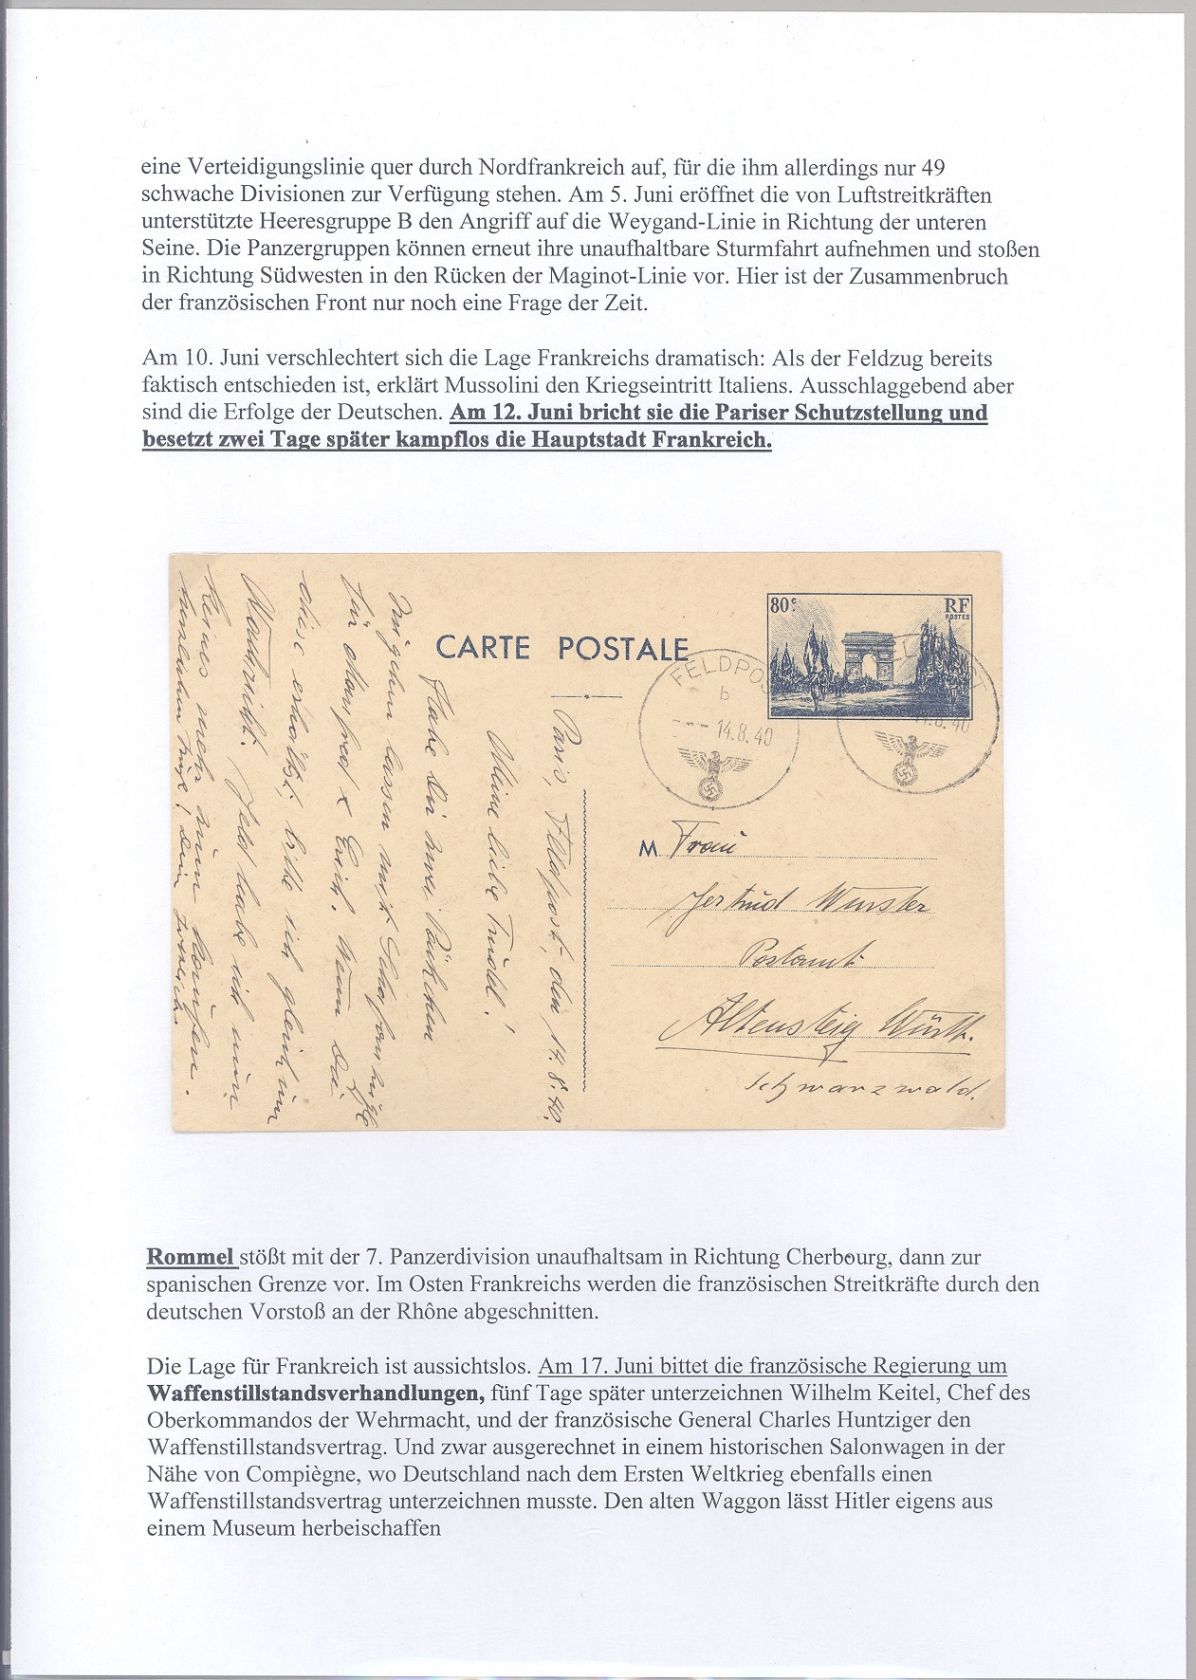 eine Verteidigungslinie quer durch Nordfrankreich auf, für die ihm allerdings nur 49
schwache Divisionen zur Verfügung stehen. Am 5. Juni eröffnet die von Luftstreitkräften
unterstützte Heeresgruppe B den Angriff auf die Weygand-Linie in Richtung der unteren
Seine. Die Panzergruppen können erneut ihre unaufhaltbare Sturmfahrt aufnehmen und stoßen
in Richtung Südwesten in den Rücken der Maginot-Linie vor. Hier ist der Zusammenbruch
der französischen Front nur noch eine Frage der Zeit.
Am 10. Juni verschlechtert sich die Lage Frankreichs dramatisch: Als der Feldzug bereits
faktisch entschieden ist, erklärt Mussolini den Kriegseintritt Italiens. Ausschlaggebend aber
sind die Erfolge der Deutschen. Am 12. Juni bricht sie die Pariser Schutzstellung und
besetzt zwei Tage später kampflos die Hauptstadt Frankreich.
80c RF
POSTES
CARTE POSTALE
FELDPOST
b
14.8.40
FELDPOST
14.8.40
Paris, Feldpost, den 14.8.40.
Meine liebe Trudl!
Habe Dir zwei Päckchen
lassen mit
für Manfred & Erich. Wenn Du
diese erhältst, bitte ich gleich um
Nachricht. Geld habe ich nun
keines mehr zum kaufen.
Dein
M Frau
Gertrud Wurster
Postamt
Altensteig Württ.
Schwarzwald.
Rommel stößt mit der 7. Panzerdivision unaufhaltsam in Richtung Cherbourg, dann zur
spanischen Grenze vor. Im Osten Frankreichs werden die französischen Streitkräfte durch den
deutschen Vorstoß an der Rhône abgeschnitten.
Die Lage für Frankreich ist aussichtslos. Am 17. Juni bittet die französische Regierung um
Waffenstillstandsverhandlungen, fünf Tage später unterzeichnen Wilhelm Keitel, Chef des
Oberkommandos der Wehrmacht, und der französische General Charles Huntziger den
Waffenstillstandsvertrag. Und zwar ausgerechnet in einem historischen Salonwagen in der
Nähe von Compiègne, wo Deutschland nach dem Ersten Weltkrieg ebenfalls einen
Waffenstillstandsvertrag unterzeichnen musste. Den alten Waggon lässt Hitler eigens aus
einem Museum herbeischaffen